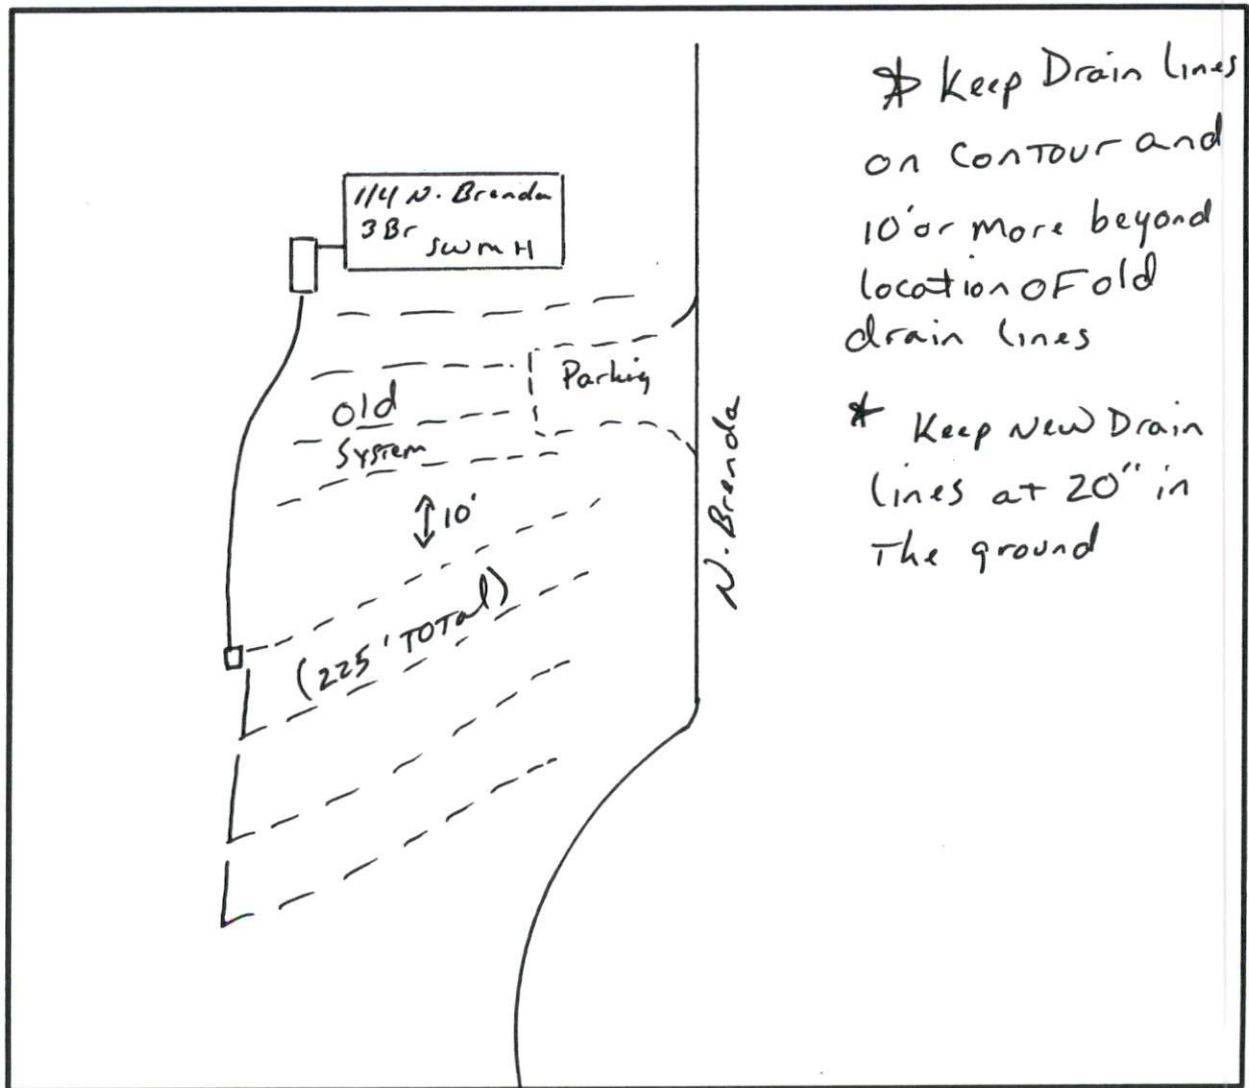 114 N. Brenda
3 Br
SWMH
Parking
Old
System
10'
(225' TOTAL)
N. Brenda
* Keep Drain lines
on Contour and
10' or more beyond
location of old
drain lines
* Keep New Drain
lines at 20" in
The ground